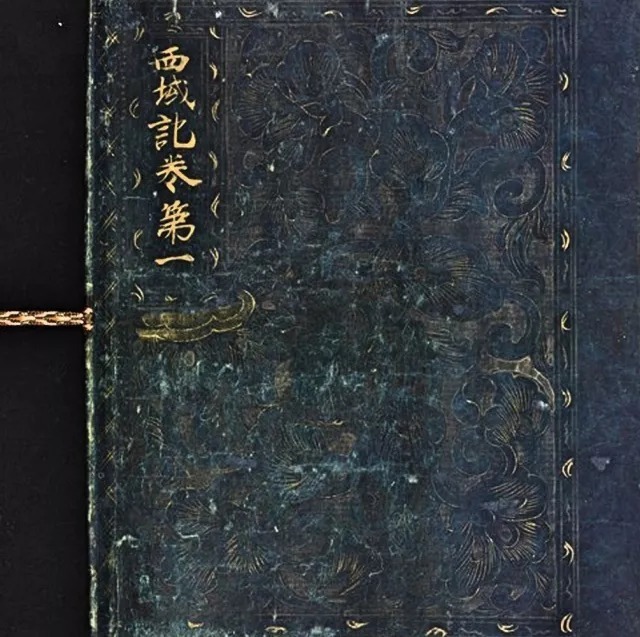 西域記卷第一